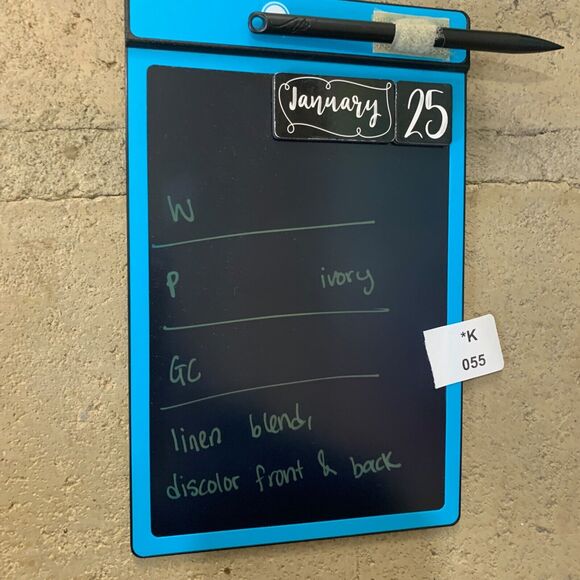 January 25
W
P ivory
*K
055
GC
linen blend,
discolor front & back